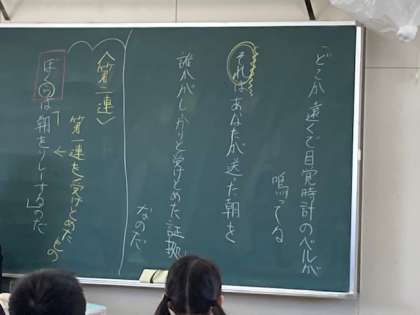 どこか遠くで目覚時計のベルが
鳴ってる
それはあなたが送った朝を
誰かがしっかと受けとめた証拠
なのだ
〈第二連〉
第一連を受けとめたもの
ぼくらは朝をリレーするのだ